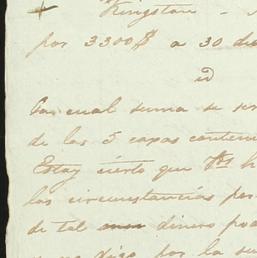 Kingston
por 3300$ a 30 dia
id
La cual suma se ser
de las 5 capas conteni
Estoy cierto que Vs h
las circunstancias por
de tal dinero pod
por la su